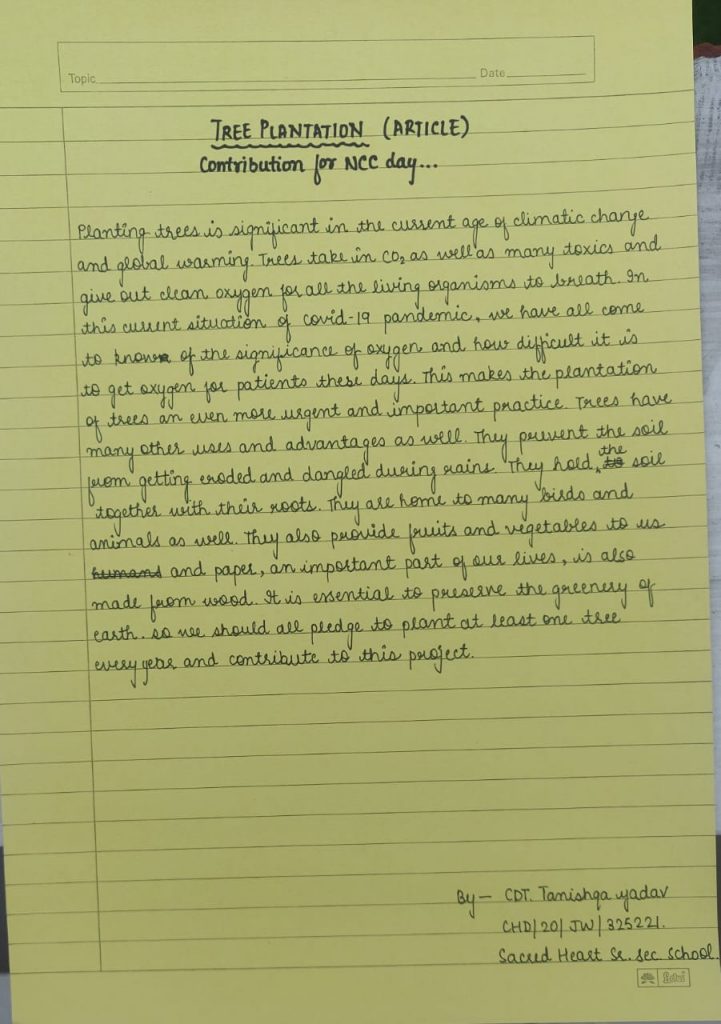 Topic
Date
TREE PLANTATION (ARTICLE)
Contribution for NCC day...
Planting trees is significant in the current age of climatic change
and global warming. Trees take in CO₂ as well as many toxics and
give out clean oxygen for all the living organisms to breath. In
this current situation of covid-19 pandemic, we have all come
to know of the significance of oxygen and how difficult it is
to get oxygen for patients these days. This makes the plantation
of trees an even more urgent and important practice. Trees have
many other uses and advantages as well. They prevent the soil
from getting eroded and dangled during rains. They hold the soil
together with their roots. They are home to many birds and
animals as well. They also provide fruits and vegetables to us
humans and paper, an important part of our lives, is also
made from wood. It is essential to preserve the greenery of
earth. so we should all pledge to plant at least one tree
every year and contribute to this project.
By - CDT. Tanishqa yadav
CHD/20/JW/325221.
Sacred Heart Sr. Sec. School.